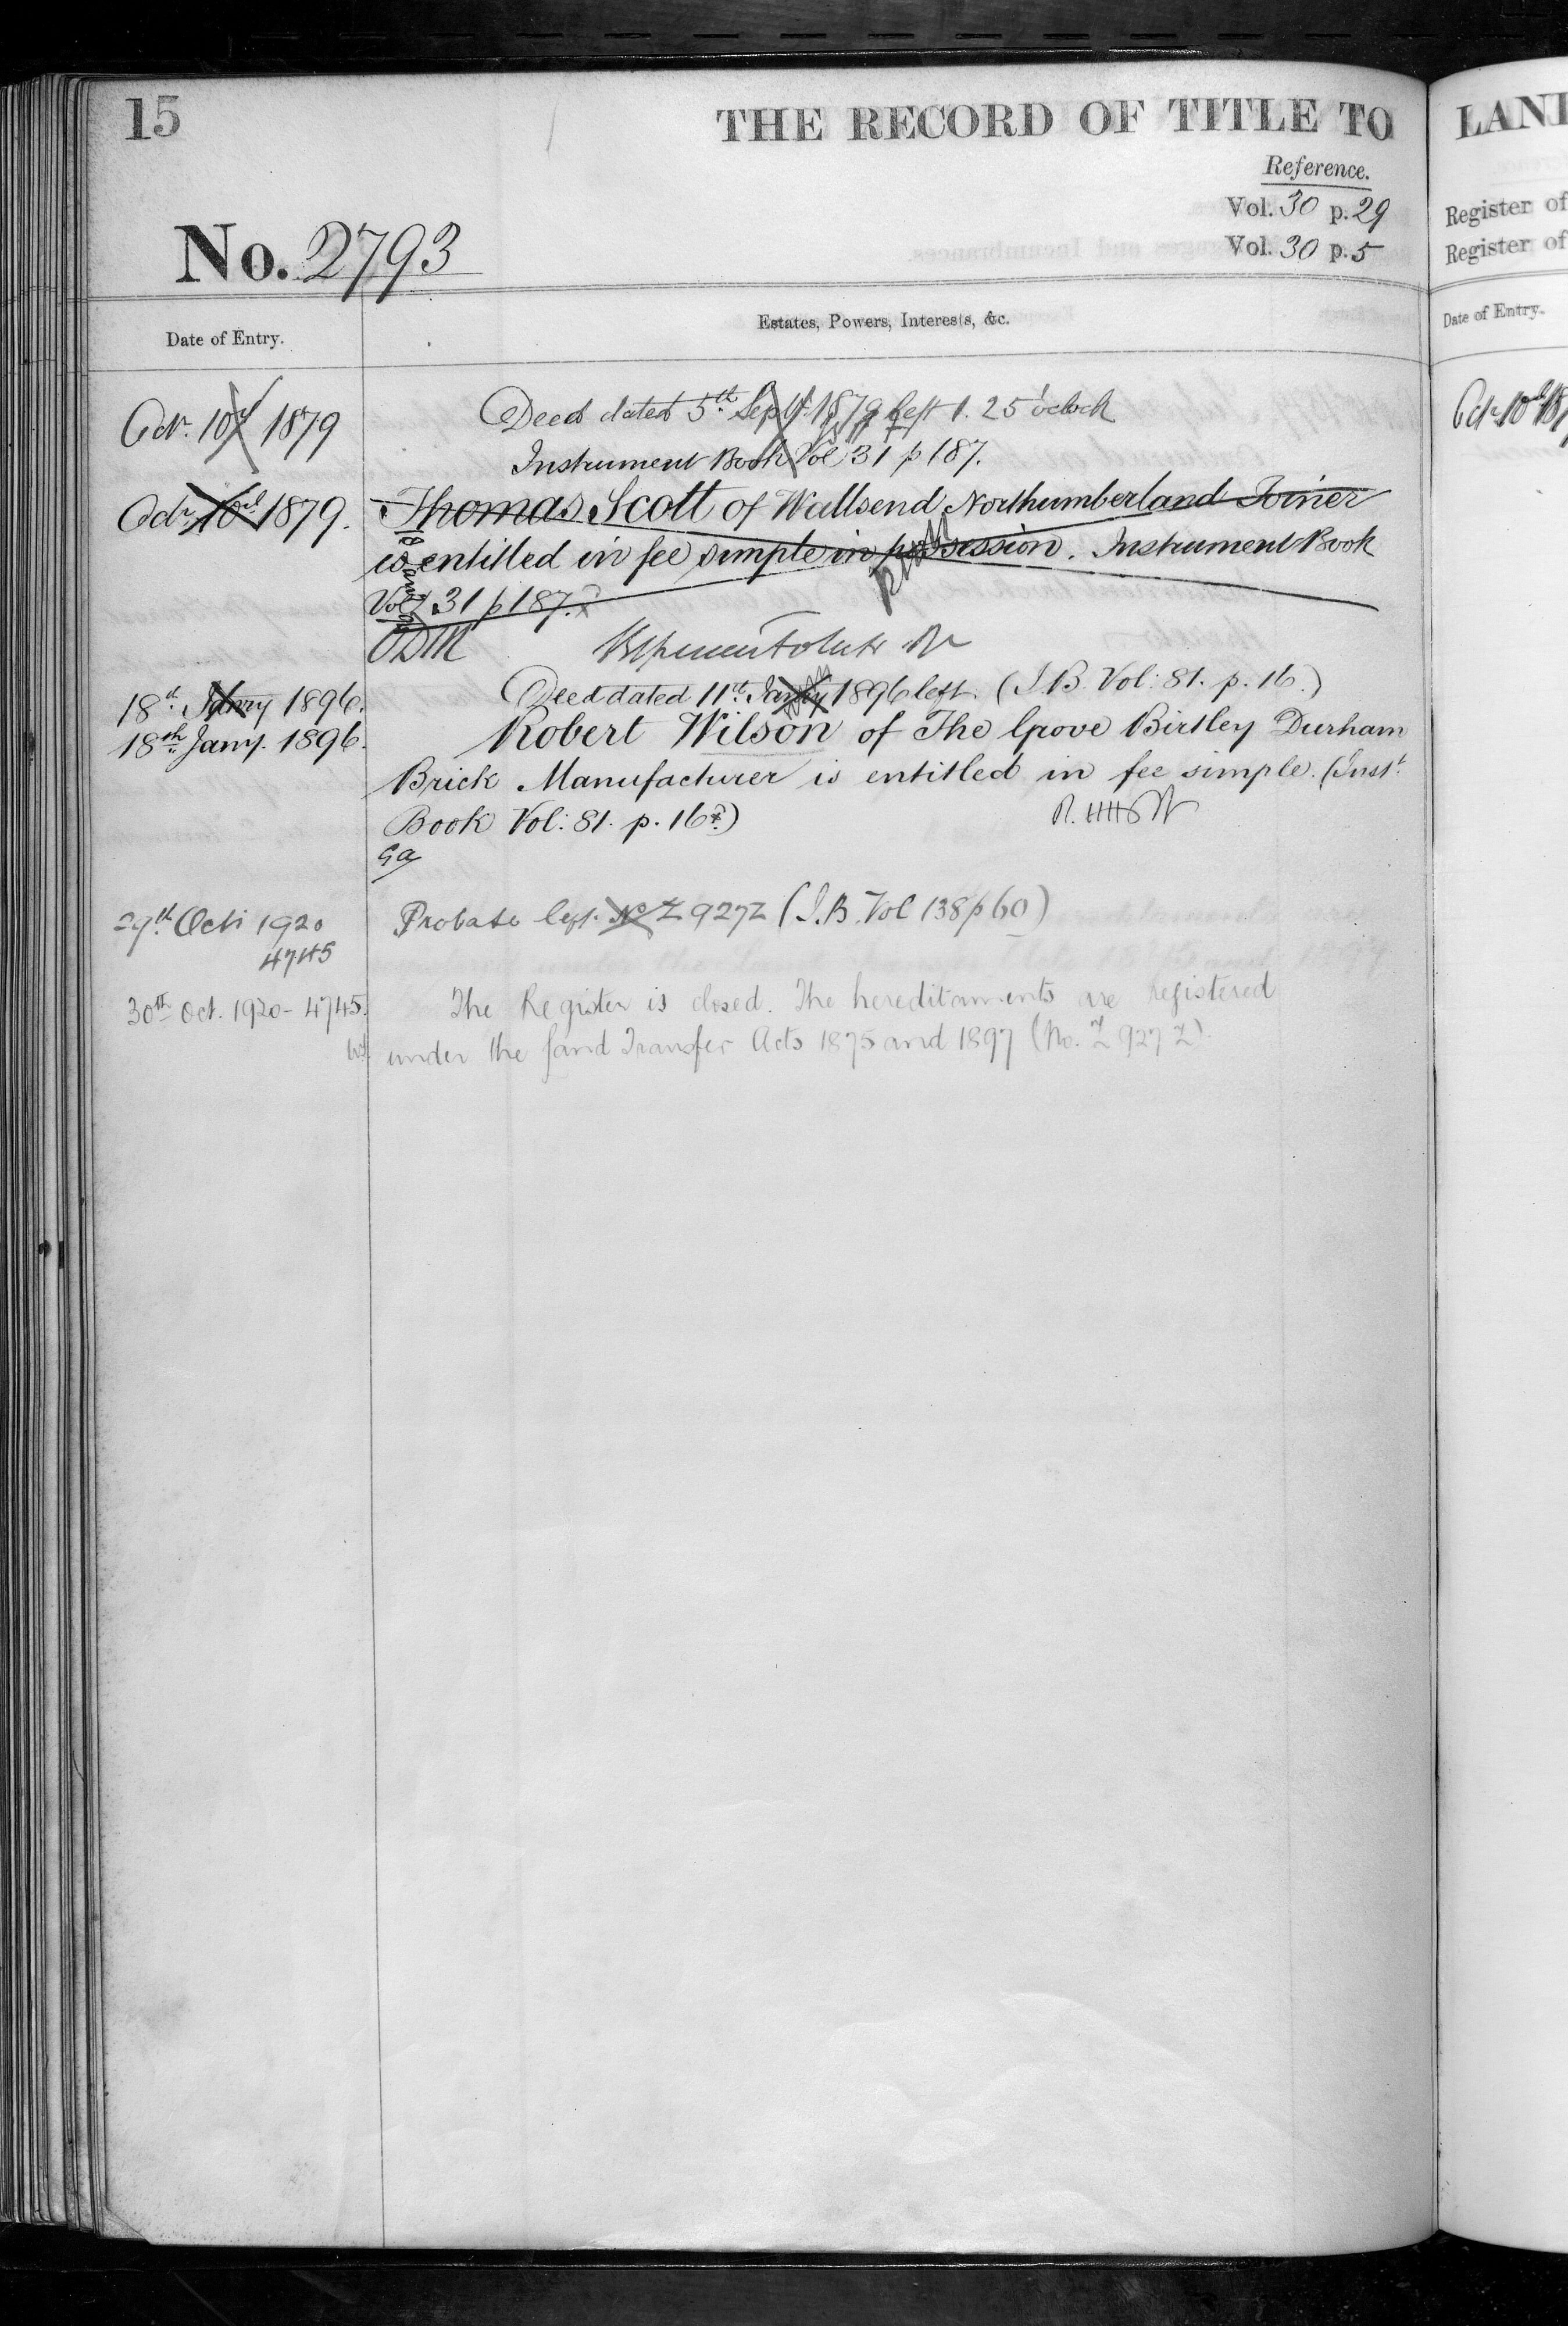 15
THE RECORD OF TITLE TO
LAND
Reference.
Vol. 30 p. 29
Register of
Vol. 30 p. 5
Register of
No. 2793
Date of Entry.
Estates, Powers, Interests, &c.
Date of Entry.
Octr. 10th 1879
Deed dated 5th Septr 1879 left 1. 25 o'clock
Instrument Book Vol 31 p 187.
Octr. 10th 1879.
Thomas Scott of Wallsend Northumberland Joiner
is entitled in fee simple in possession. Instrument Book
Vol 31 p 187.
18th Janry 1896.
Deed dated 11th Janry 1896 left. (I.B. Vol: 81. p. 16.)
18th Jany. 1896.
Robert Wilson of The Grove Birtley Durham
Brick Manufacturer is entitled in fee simple. (Inst.
Book Vol: 81. p. 16.)
29th Oct. 1920
Probate left. No Z 927Z (I.B. Vol 138 p 60)
4745
30th Oct. 1920 - 4745.
The Register is closed. The hereditaments are registered
under the Land Transfer Acts 1875 and 1897 (No. Z 927 Z).